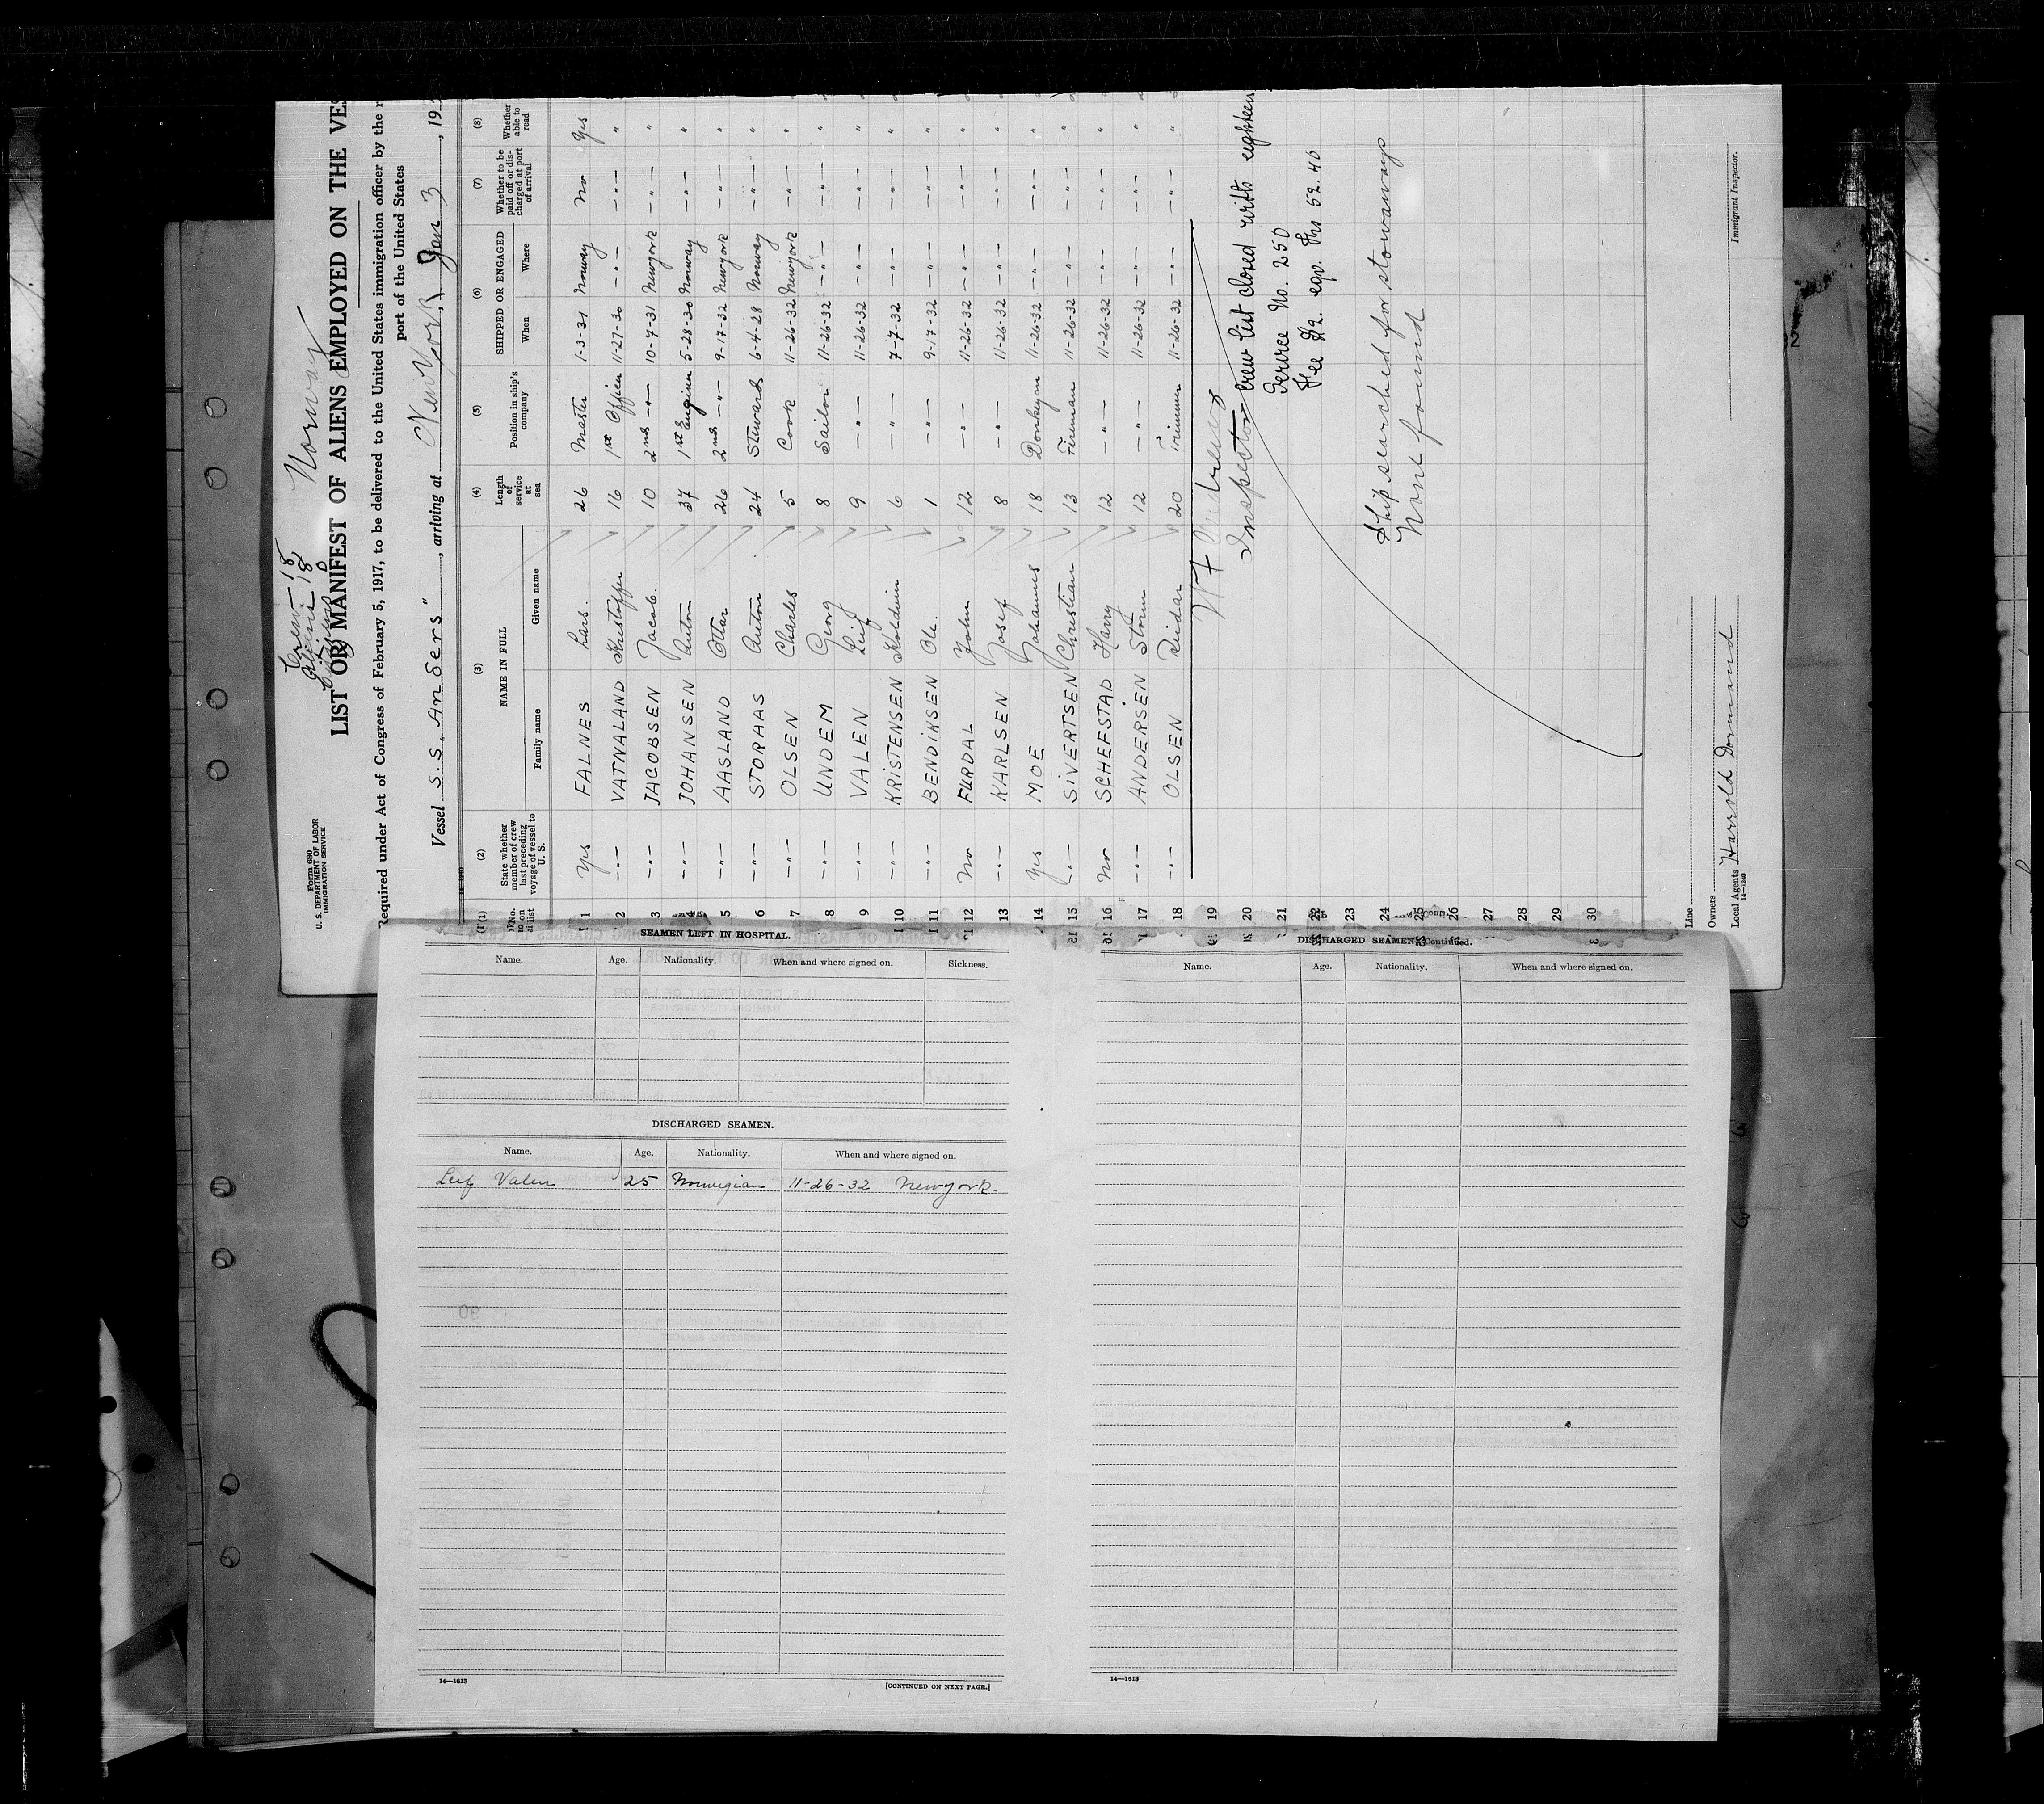 Form 680
U. S. DEPARTMENT OF LABOR
IMMIGRATION SERVICE
Crew 18
Aliens 18
Citizens 0
Norway
LIST OR MANIFEST OF ALIENS EMPLOYED ON THE VES
Required under Act of Congress of February 5, 1917, to be delivered to the United States immigration officer by the r
port of the United States
Vessel S.S. Anders", arriving at New York Jan 3, 193
(1) (2) (3) (4) (5) (6) (7) (8)
No. on list
State whether member of crew last preceding voyage of vessel to U. S.
NAME IN FULL
Family name Given name
Length of service at sea
Position in ship's company
SHIPPED OR ENGAGED
When Where
Whether to be paid off or discharged at port of arrival
Whether able to read
1 Yes FALNES Lars. 26 Master 1-3-31 Norway No Yes
2 -"- VATNALAND Kristoffer 16 1st Officer 11-27-30 -"- -"- "
3 -"- JACOBSEN Jacob. 10 2nd -"- 10-7-31 Newyork -"- "
4 -"- JOHANSEN Anton 37 1st Engineer 5-28-30 Norway -"- "
5 -"- AASLAND Ottar 26 2nd -"- 9-17-32 Newyork -"- "
6 -"- STORAAS Anton 24 Stewards 6-4-28 Norway -"- "
7 -"- OLSEN Charles 5 Cook 11-26-32 Newyork -"- "
8 -"- UNDEM Georg 8 Sailor 11-26-32 -"- -"- "
9 -"- VALEN Leif 9 -"- 11-26-32 -"- -"- "
10 -"- KRISTENSEN 6 -"- 7-7-32 -"- -"- "
11 -"- BENDIKSEN Ole. 1 -"- 9-17-32 -"- -"- "
12 No FURDAL John 12 -"- 11-26-32 -"- -"- "
13 -"- KARLSEN Josef 8 -"- 11-26-32 -"- -"- "
14 Yes MOE Johannes 18 Donkeym 11-26-32 -"- -"- "
15 -"- SIVERTSEN Christian 13 Fireman 11-26-32 -"- -"- "
16 No SCHEFSTAD Harry 12 -"- 11-26-32 -"- -"- "
17 -"- ANDERSEN Storm 12 -"- 11-26-32 -"- -"- "
18 -"- OLSEN Reidar 20 Trimmer 11-26-32 -"- -"- "
19
20
21
22
23
24
25
26
27
28
29
30
Inspector
Crew list closed with eighteen
Service No. 250
Fee $2. eqv. Frs 52.40
Ship searched for stowaways
None found
Line
Owners
Local Agents Harrold Dormand
14-1240
Immigrant Inspector.
SEAMEN LEFT IN HOSPITAL.
Name. Age. Nationality. When and where signed on. Sickness.
DISCHARGED SEAMEN.
Name. Age. Nationality. When and where signed on.
Leif Valen 25 Norwegian 11-26-32 Newyork.
14—1613
[CONTINUED ON NEXT PAGE.]
DISCHARGED SEAMEN—Continued.
Name. Age. Nationality. When and where signed on.
14—1613